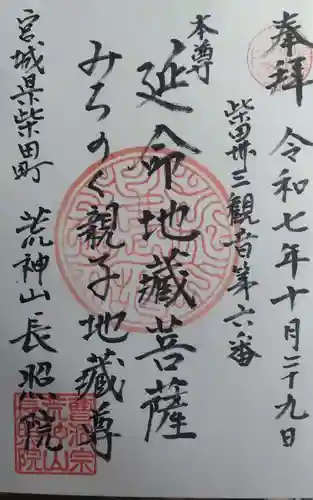 奉拝
令和七年十月二十九日
柴田卅三観音第六番
本尊
延命地蔵菩薩
みちのく親子地蔵尊
宮城県柴田町
荒神山長照院
曹洞宗
荒神山
長照院